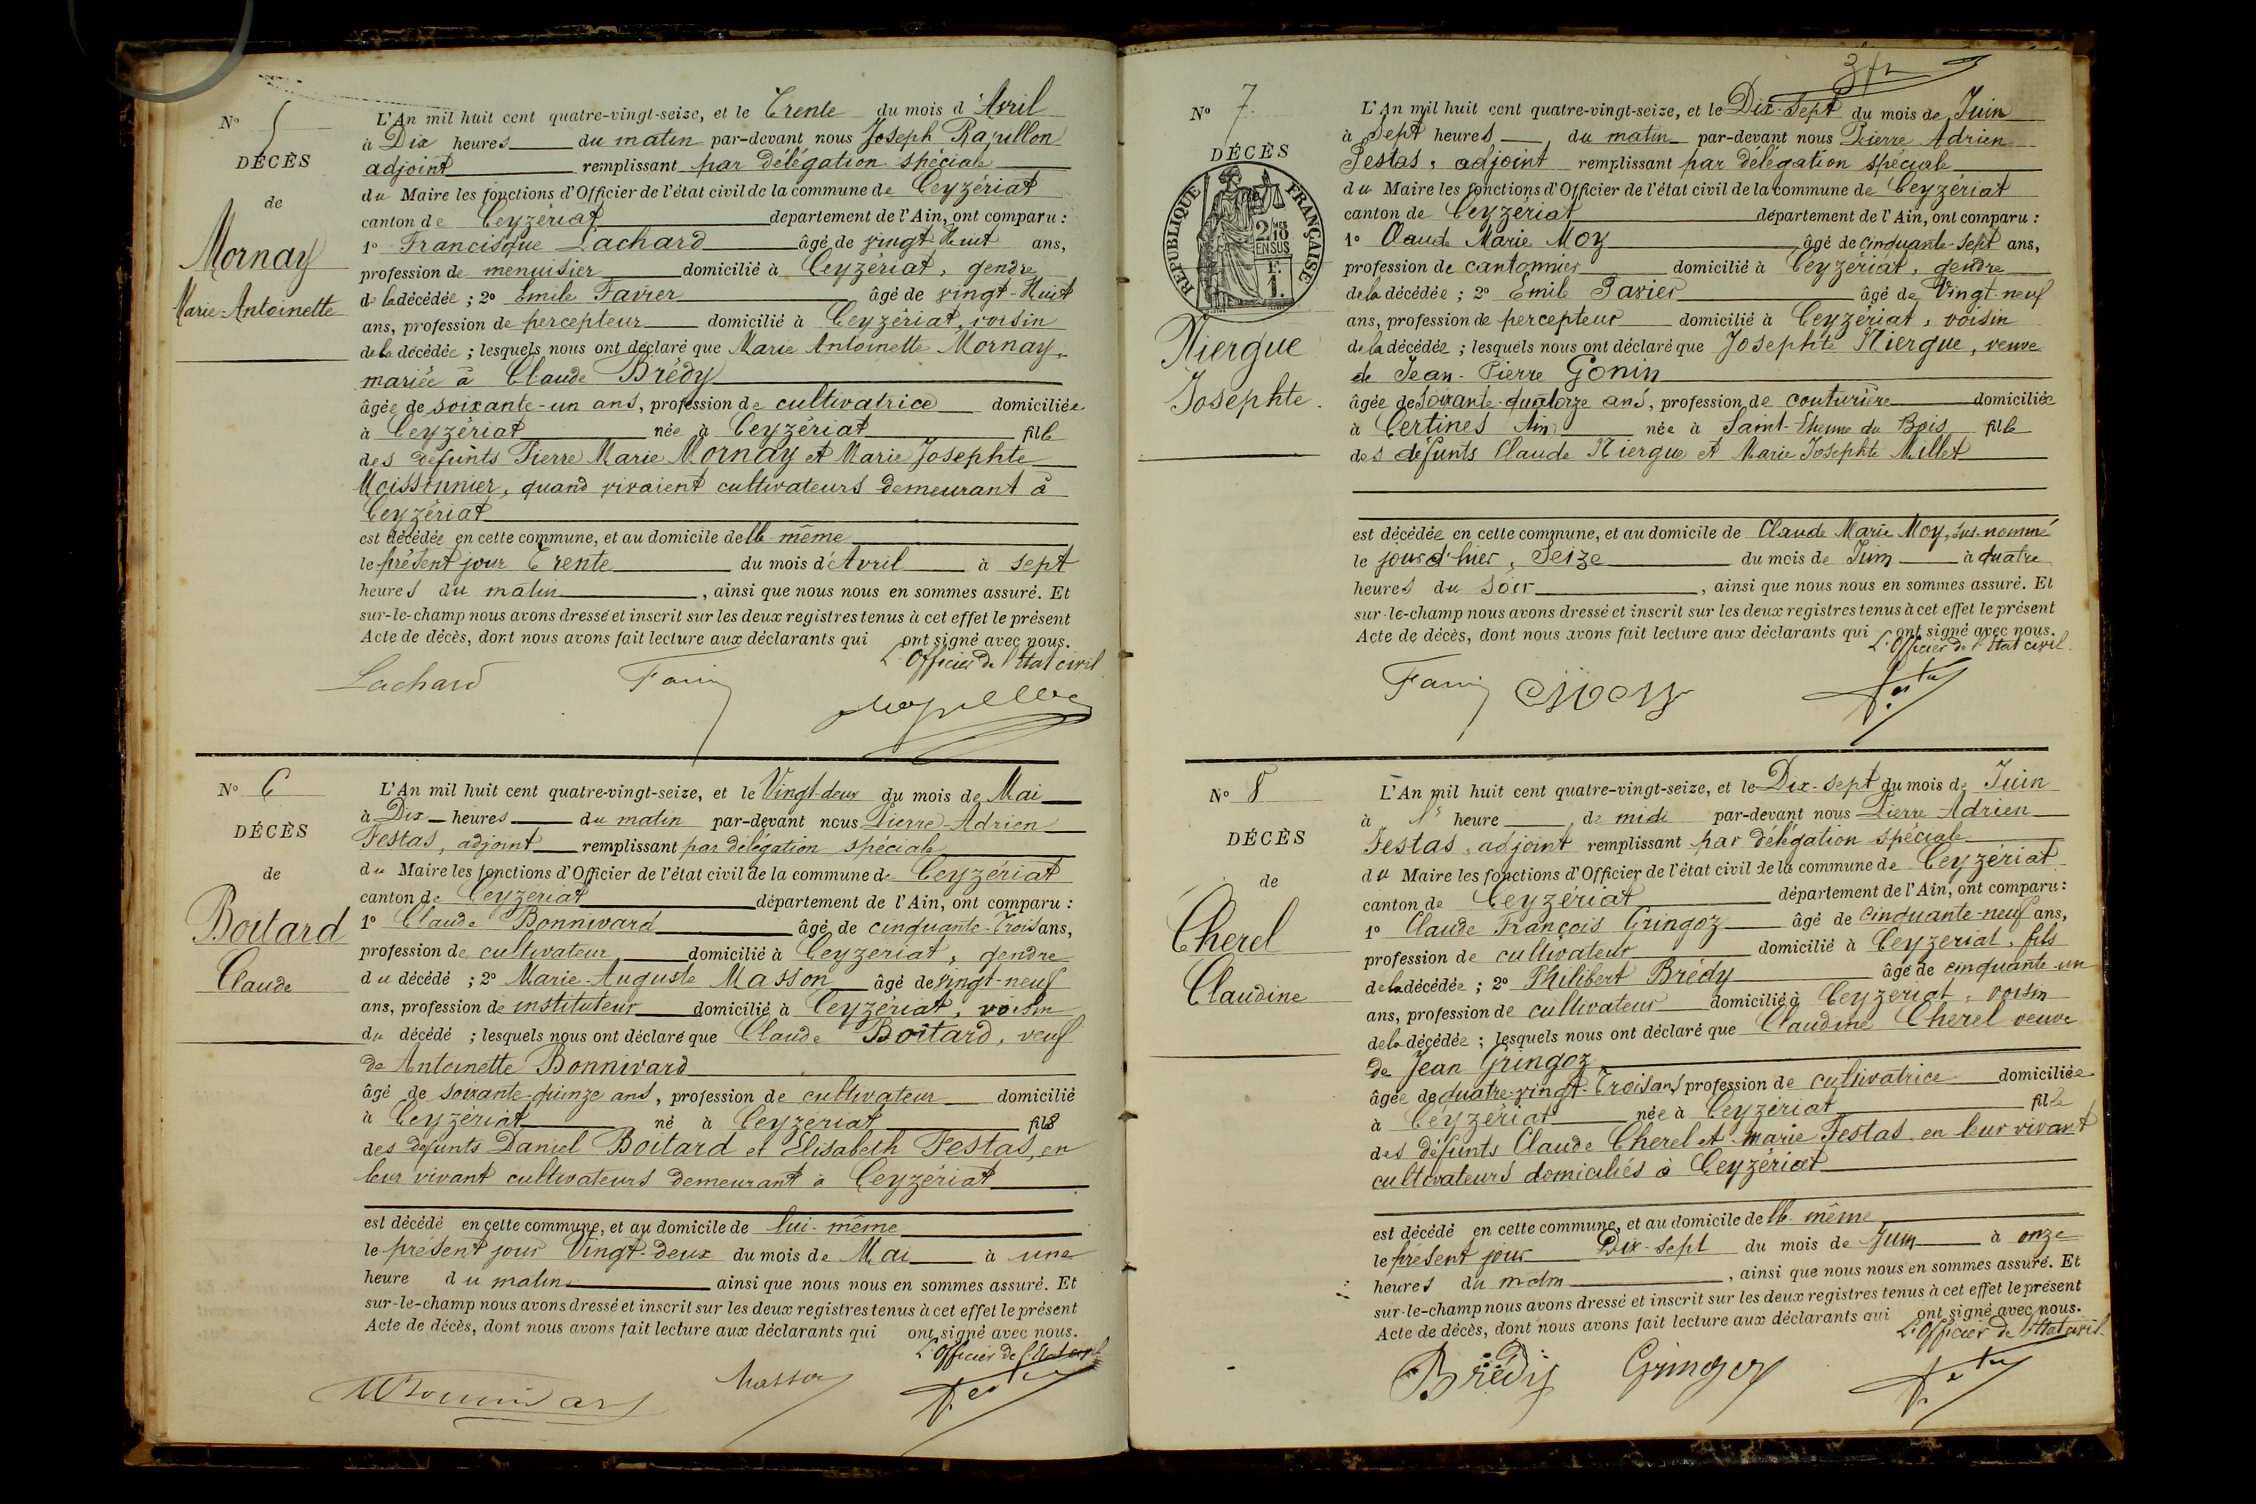 N° 5
DÉCÈS
de
Mornay
Marie-Antoinette
L'An mil huit cent quatre-vingt-seize, et le Trente du mois d'Avril
à Dix heures du matin par-devant nous Joseph Rapillon
adjoint remplissant par délégation spéciale
du Maire les fonctions d'Officier de l'état civil de la commune de Ceyzériat
canton de Ceyzériat departement de l'Ain, ont comparu :
1° Francisque Lachard âgé de vingt-Huit ans,
profession de menuisier domicilié à Ceyzériat, gendre
de la décédée ; 2° Emile Favier âgé de vingt-Huit
ans, profession de percepteur domicilié à Ceyzériat, voisin
de la décédée ; lesquels nous ont déclaré que Marie Antoinette Mornay,
mariée à Claude Brédy
âgée de soixante-un ans, profession de cultivatrice domiciliée
à Ceyzériat née à Ceyzériat fille
des défunts Pierre Marie Mornay et Marie Josephte
Moissonnier, quand vivaient cultivateurs demeurant à
Ceyzériat
est décédée en cette commune, et au domicile d'elle-même
le présent jour Trente du mois d'Avril à sept
heures du matin, ainsi que nous nous en sommes assuré. Et
sur-le-champ nous avons dressé et inscrit sur les deux registres tenus à cet effet le présent
Acte de décès, dont nous avons fait lecture aux déclarants qui ont signé avec nous.
L'Officier de l'Etat civil
Lachard
N° 6
DÉCÈS
de
Boitard
Claude
L'An mil huit cent quatre-vingt-seize, et le Vingt-deux du mois de Mai
à Dix heures du matin par-devant nous Pierre-Adrien
Festas, adjoint remplissant par délégation spéciale
du Maire les fonctions d'Officier de l'état civil de la commune de Ceyzériat
canton de Ceyzériat département de l'Ain, ont comparu :
1° Claude Bonnivard âgé de cinquante-Trois ans,
profession de cultivateur domicilié à Ceyzériat, gendre
du décédé ; 2° Marie-Auguste Masson âgé de vingt-neuf
ans, profession de instituteur domicilié à Ceyzériat, voisin
du décédé ; lesquels nous ont déclaré que Claude Boitard, veuf
de Antoinette Bonnivard
âgé de soixante-quinze ans, profession de cultivateur domicilié
à Ceyzériat né à Ceyzériat fils
des défunts Daniel Boitard et Elisabeth Festas, en
leur vivant cultivateurs demeurant à Ceyzériat
est décédé en cette commune, et au domicile de lui-même
le présent jour Vingt-deux du mois de Mai à une
heure du matin ainsi que nous nous en sommes assuré. Et
sur-le-champ nous avons dressé et inscrit sur les deux registres tenus à cet effet le présent
Acte de décès, dont nous avons fait lecture aux déclarants qui ont signé avec nous.
L'Officier de l'Etat civil
Masson
N° 7
DÉCÈS
RÉPUBLIQUE FRANÇAISE
2/10 EN SUS
F. 1.
Niergue
Josephte
L'An mil huit cent quatre-vingt-seize, et le Dix-Sept du mois de Juin
à Sept heures du matin par-devant nous Pierre Adrien
Festas, adjoint remplissant par délégation spéciale
du Maire les fonctions d'Officier de l'état civil de la commune de Ceyzériat
canton de Ceyzériat département de l'Ain, ont comparu :
1° Claude Marie Moy âgé de cinquante-sept ans,
profession de cantonnier domicilié à Ceyzériat, gendre
de la décédée ; 2° Emile Favier âgé de Vingt-neuf
ans, profession de percepteur domicilié à Ceyzériat, voisin
de la décédée ; lesquels nous ont déclaré que Josephte Niergue, veuve
de Jean-Pierre Gonin
âgée de Soixante-quatorze ans, profession de couturière domiciliée
à Certines Ain née à Saint-Etienne du Bois fille
des défunts Claude Niergue et Marie Josephte Millet
est décédée en cette commune, et au domicile de Claude Marie Moy, sus-nommé
le jour d'hier, Seize du mois de Juin à quatre
heures du soir, ainsi que nous nous en sommes assuré. Et
sur-le-champ nous avons dressé et inscrit sur les deux registres tenus à cet effet le présent
Acte de décès, dont nous avons fait lecture aux déclarants qui ont signé avec nous.
L'Officier de l'Etat civil.
N° 8
DÉCÈS
de
Cherel
Claudine
L'An mil huit cent quatre-vingt-seize, et le Dix-sept du mois de Juin
à heure de midi par-devant nous Pierre Adrien
Festas, adjoint remplissant par délégation spéciale
du Maire les fonctions d'Officier de l'état civil de la commune de Ceyzériat
canton de Ceyzériat département de l'Ain, ont comparu :
1° Claude François Gringoz âgé de cinquante-neuf ans,
profession de cultivateur domicilié à Ceyzériat, fils
de la décédée ; 2° Philibert Brédy âgé de cinquante-un
ans, profession de cultivateur domicilié à Ceyzériat, voisin
de la décédée ; lesquels nous ont déclaré que Claudine Cherel veuve
de Jean Gringoz
âgée de quatre-vingt-Trois ans profession de cultivatrice domiciliée
à Ceyzériat née à Ceyzériat fille
des défunts Claude Cherel et marie Festas en leur vivant
cultivateurs domiciliés à Ceyzériat
est décédé en cette commune, et au domicile d'elle-même
le présent jour Dix-sept du mois de Juin à onze
heures du matin, ainsi que nous nous en sommes assuré. Et
sur-le-champ nous avons dressé et inscrit sur les deux registres tenus à cet effet le présent
Acte de décès, dont nous avons fait lecture aux déclarants qui ont signé avec nous.
L'Officier de l'Etat civil.
Brédy Gringoz